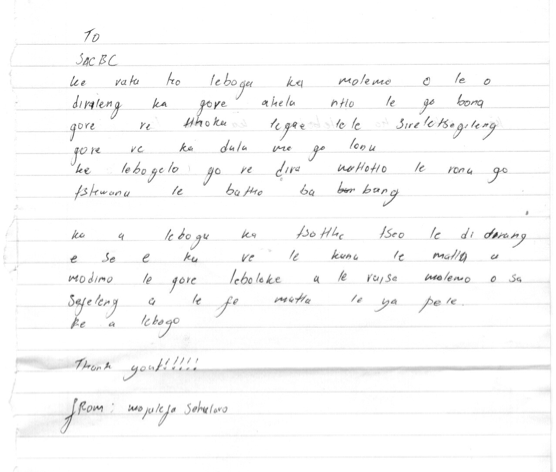 TO
SACBC
ke rata ho leboga ka molemo o le o
dirileng ka gore ahela ntlo le go bona
gore re tlhoka legae le le sireletsegileng
gore re ka dula mo go lona
ke lebogelo go re dira le rona go
tshwana le batho ba bang
ka a leboga ka tsotlhe tseo le di dirang
e se e ka re le kuna le matla a
modimo le gore leboloke a le ruise molemo o sa
seleng a le fe matla le ya pele.
ke a leboga
Thank you!!!!!!
FROM: